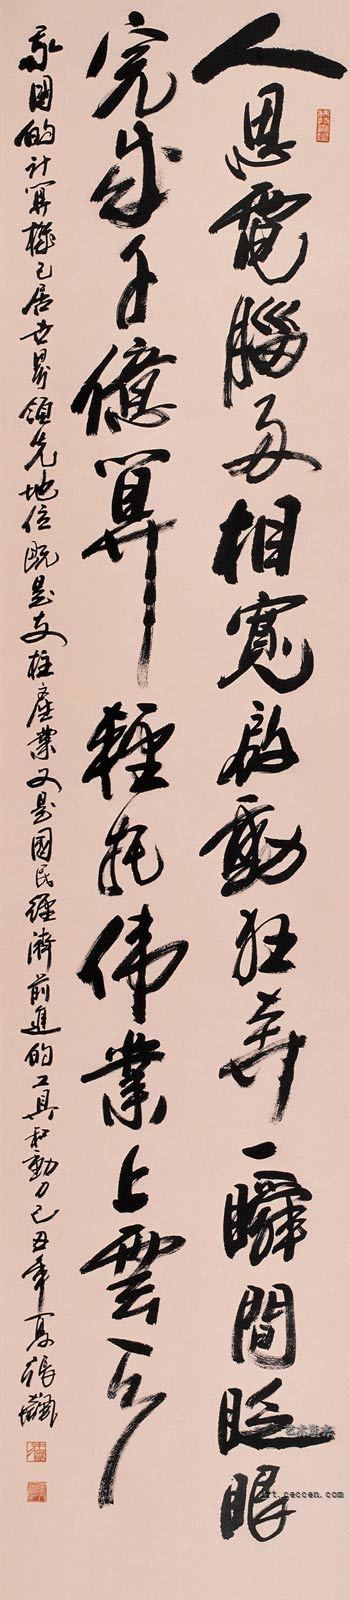 人恩電腦相寬啟動狂奔一瞬間眨眼
完成千億算輕托伟業上雲天
我国的计算機已居世界領先地位既是支柱產業又是國民經濟前進的工具和動力己丑年夏張飆
art.ceccen.com